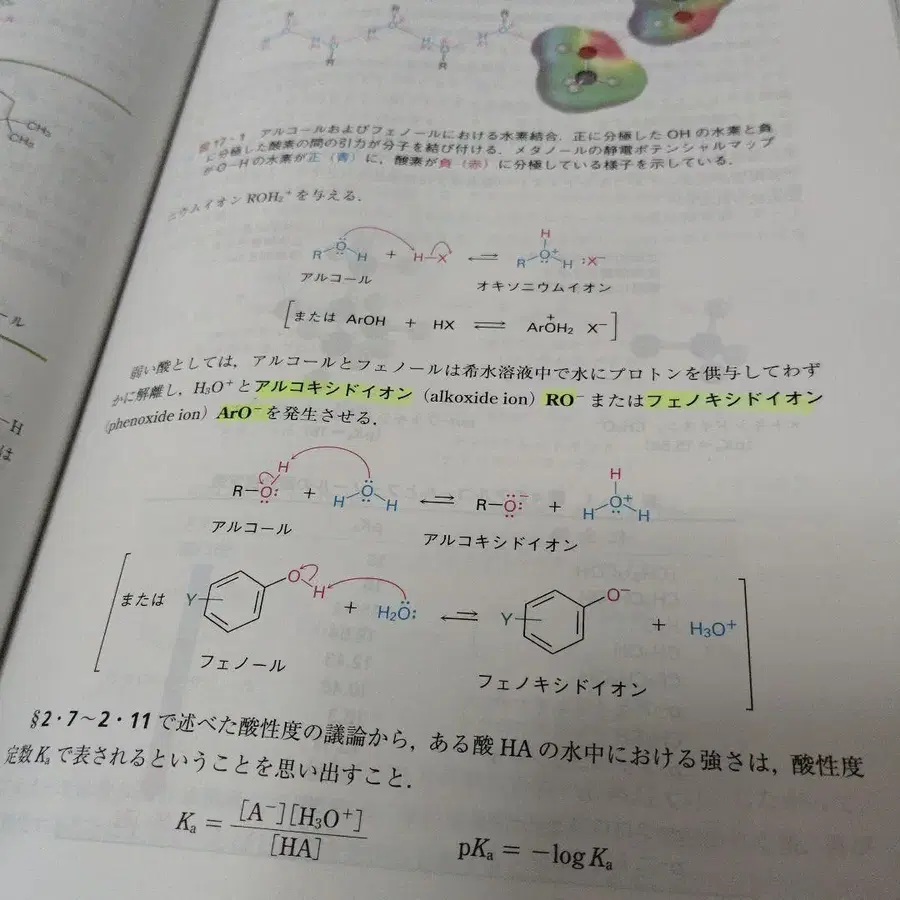 CH₃
CH₃
図17・1 アルコールおよびフェノールにおける水素結合．正に分極した OH の水素と負
に分極した酸素の間の引力が分子を結び付ける．メタノールの静電ポテンシャルマップ
がO−Hの水素が正（青）に，酸素が負（赤）に分極している様子を示している．
ニウムイオン ROH₂⁺ を与える．
R O H + H−X ⇌ R O⁺ H H :X⁻
アルコール オキソニウムイオン
[または ArOH + HX ⇌ ArO⁺H₂ X⁻]
弱い酸としては，アルコールとフェノールは希水溶液中で水にプロトンを供与してわず
かに解離し，H₃O⁺ とアルコキシドイオン（alkoxide ion）RO⁻ またはフェノキシドイオン
(phenoxide ion) ArO⁻ を発生させる．
R−O−H + H O H ⇌ R−O⁻ + H O⁺ H H
アルコール アルコキシドイオン
[または Y O H + H₂O: ⇌ Y O⁻ + H₃O⁺]
フェノール フェノキシドイオン
§2・7〜2・11 で述べた酸性度の議論から，ある酸 HA の水中における強さは，酸性度
定数 Kₐ で表されるということを思い出すこと．
Kₐ = [A⁻][H₃O⁺] / [HA] pKₐ = −log Kₐ